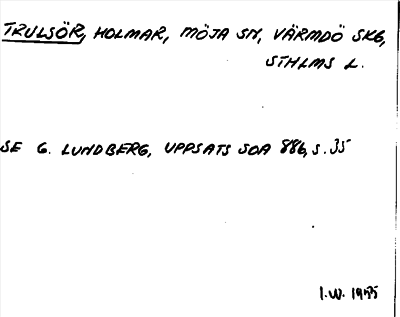 TRULSÖR, HOLMAR, MÖJA SN, VÄRMDÖ SKG,
STHLMS L.
SE G. LUNDBERG, UPPSATS SOA 886, S. 35
I.W. 1955